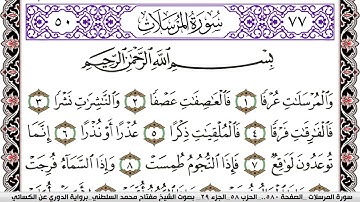 ٧٧ سُورَةُ المُرْسَلَاتِ ٥٠
بِسْمِ اللَّهِ الرَّحْمَٰنِ الرَّحِيمِ
وَالْمُرْسَلَاتِ عُرْفًا ١ فَالْعَاصِفَاتِ عَصْفًا ٢ وَالنَّاشِرَاتِ نَشْرًا ٣
فَالْفَارِقَاتِ فَرْقًا ٤ فَالْمُلْقِيَاتِ ذِكْرًا ٥ عُذْرًا أَوْ نُذْرًا ٦ إِنَّمَا
تُوعَدُونَ لَوَاقِعٌ ٧ فَإِذَا النُّجُومُ طُمِسَتْ ٨ وَإِذَا السَّمَاءُ فُرِجَتْ
سورة المرسلات ..الصفحة ٥٨٠.. الحزب ٥٨ الجزء ٢٩.. بصوت الشيخ مفتاح محمد السلطني برواية الدوري عن الكسائي